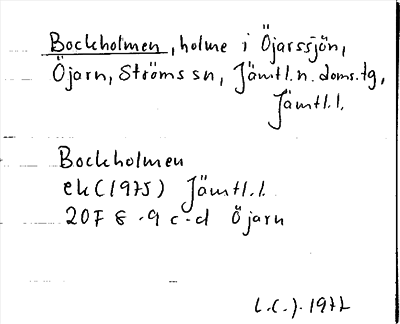 Bockholmen, holme i Öjarssjön,
Öjarn, Ströms sn, Jämtl. n. doms. tg,
Jämtl. l.
Bockholmen
ek (1975) Jämtl. l.
20F 8-9 c-d Öjarn
L.C.J. 1977